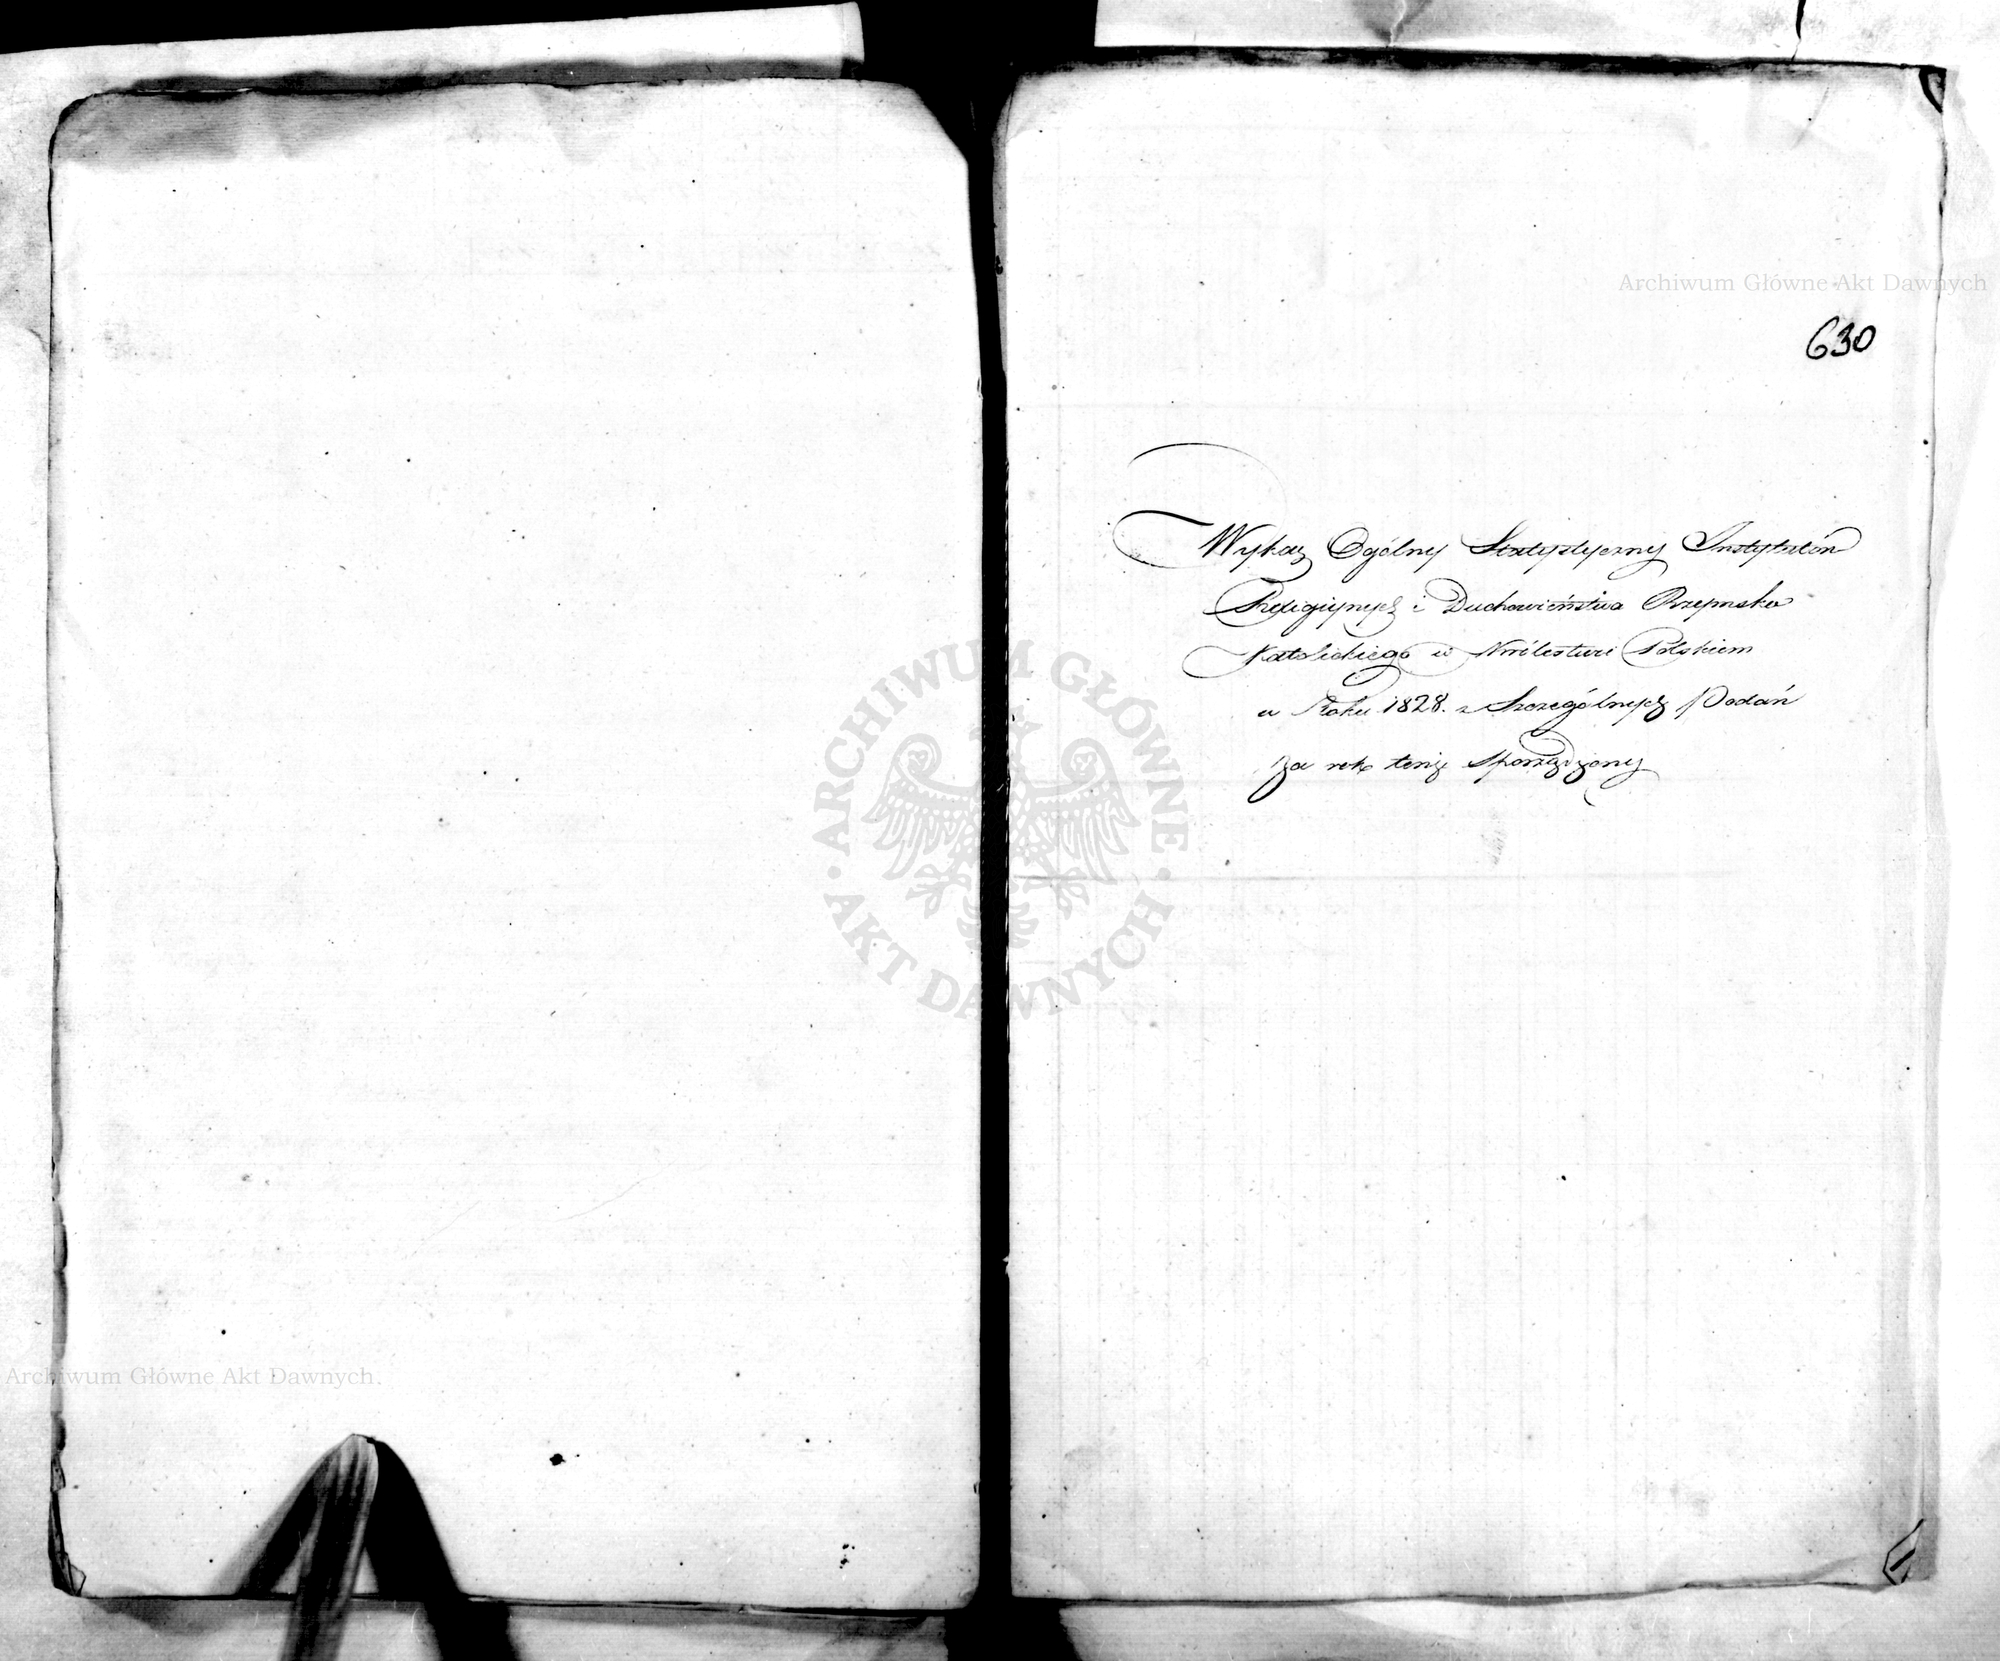 Archiwum Główne Akt Dawnych
630
Wykaz Ogólny Statystyczny Instytutów
Religijnych i Duchowieństwa Rzymsko
Katolickiego w Królestwie Polskiem
w Roku 1828. z Szczególnych Podań
za rok tenże sporządzony
ARCHIWUM GŁÓWNE
AKT DAWNYCH
Archiwum Główne Akt Dawnych